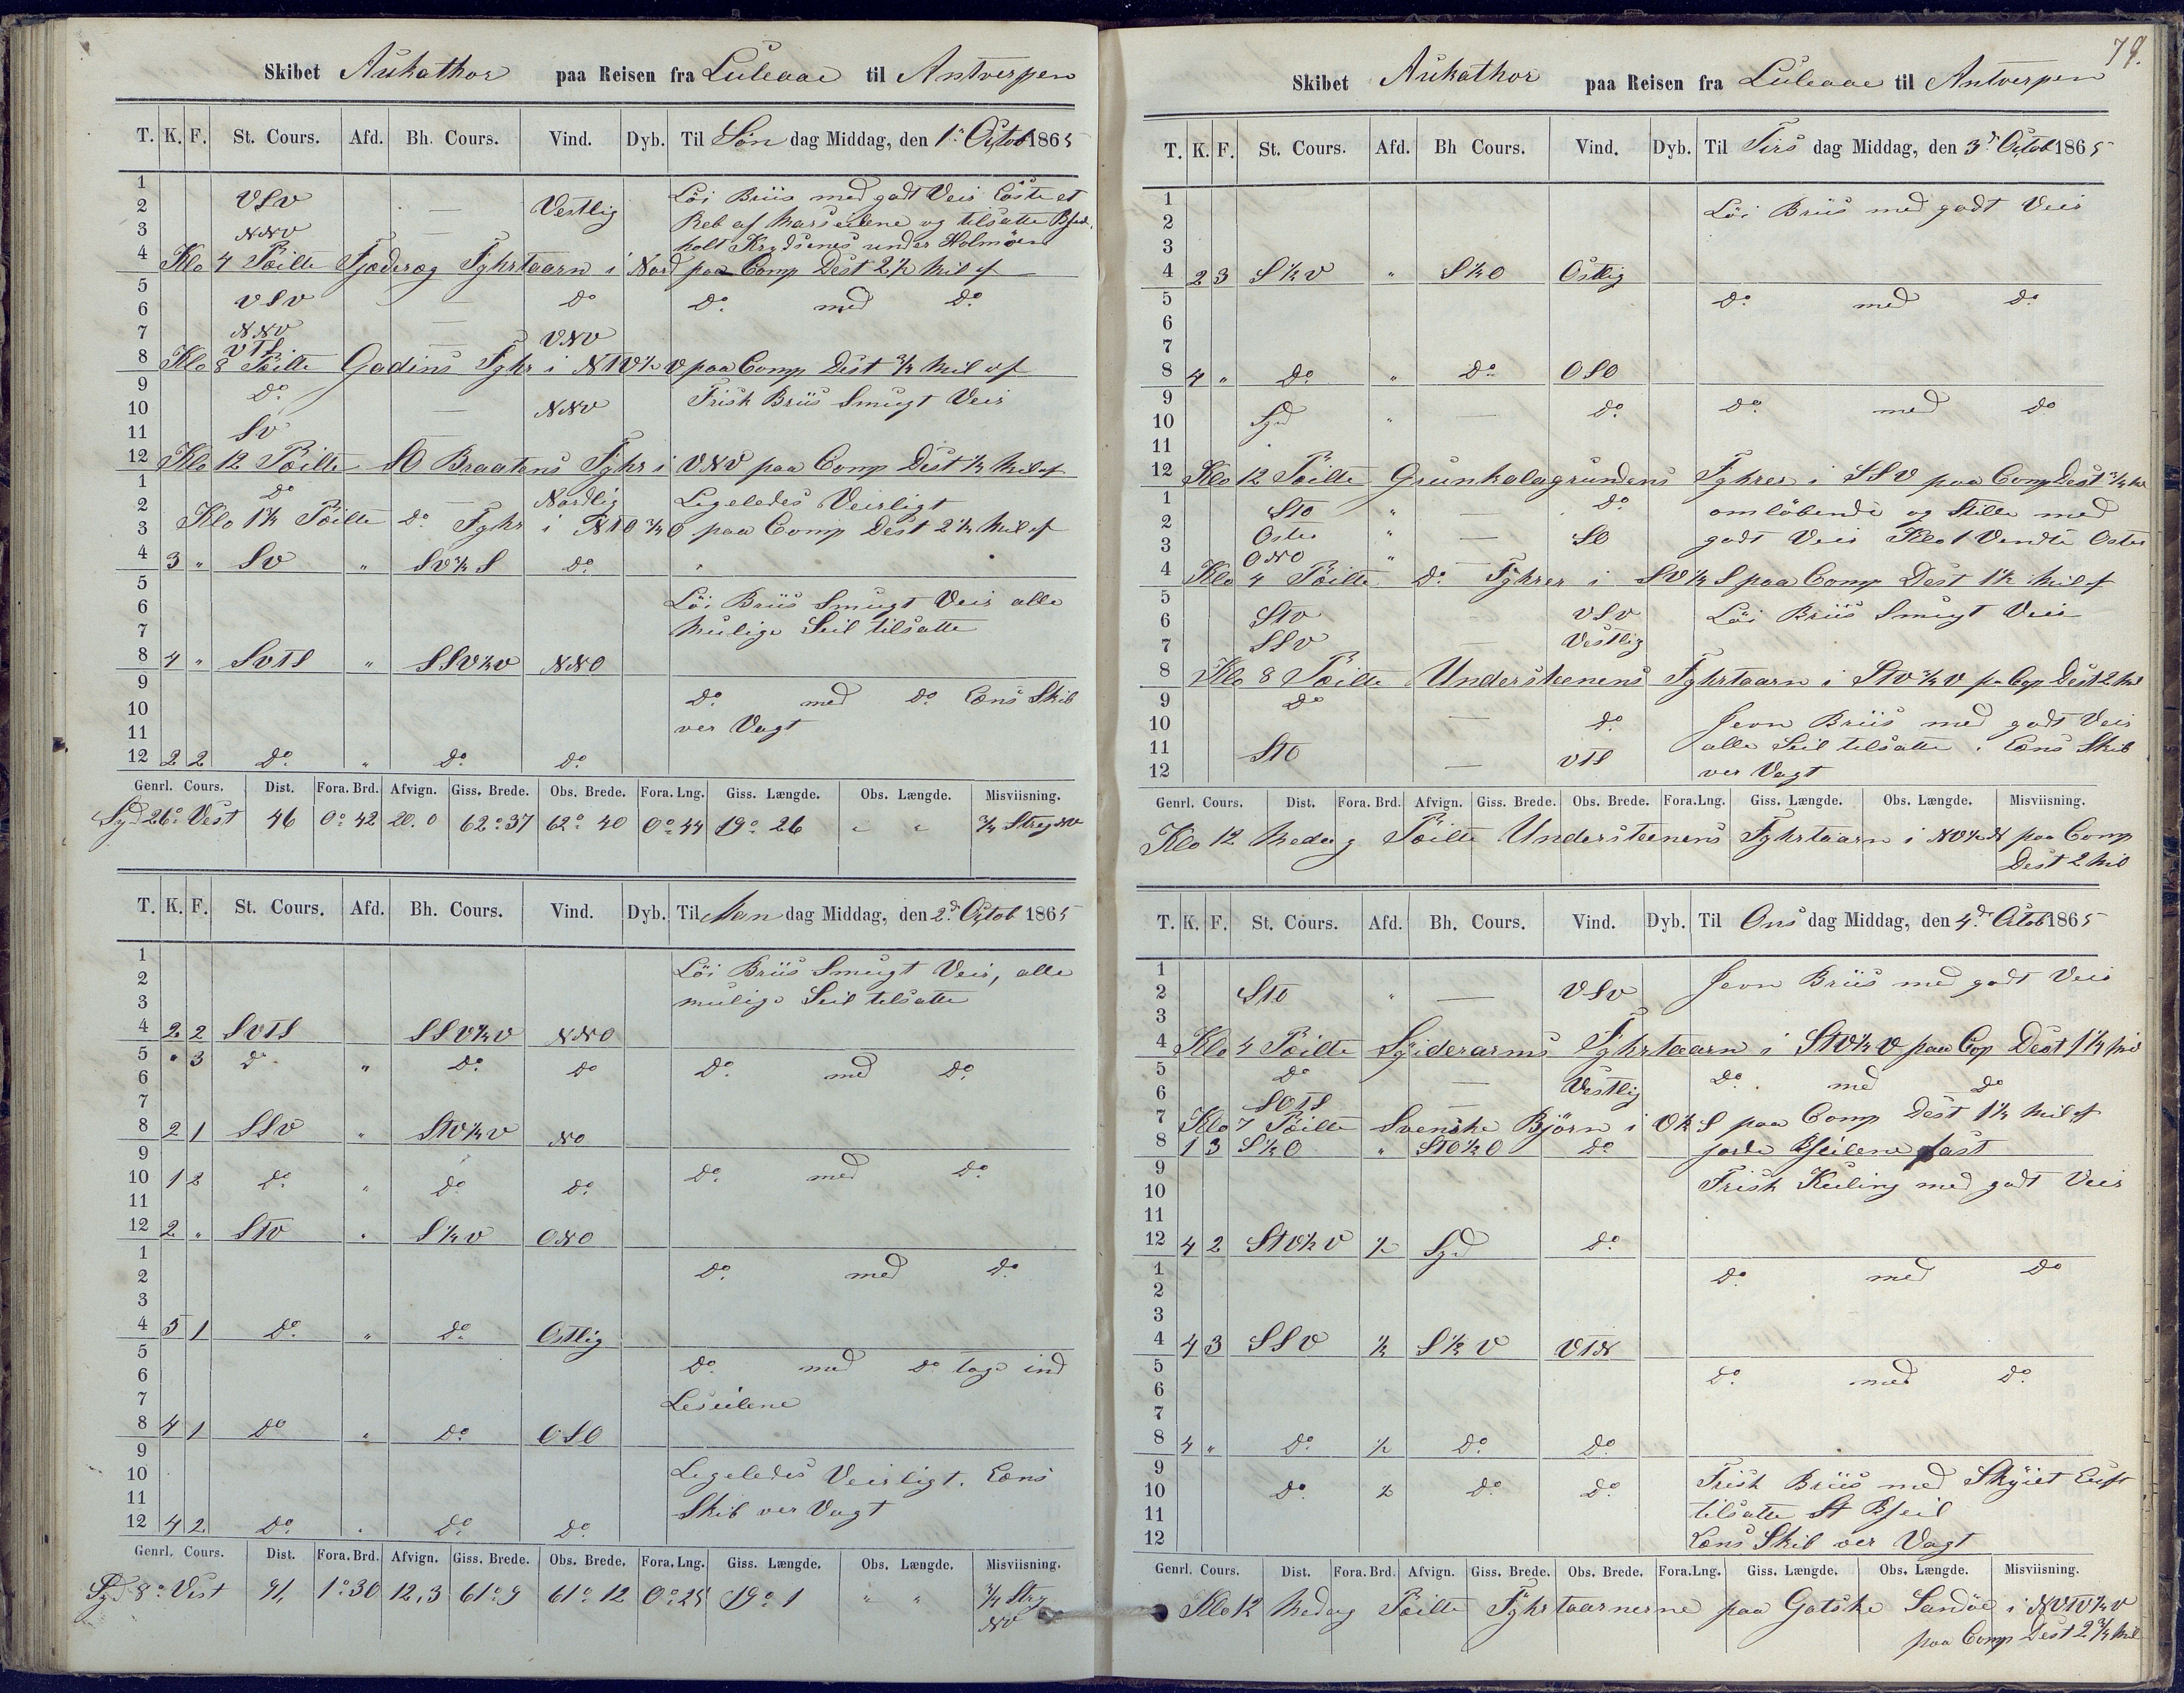 Skibet Aukathor paa Reisen fra Luleaae til Antverpen
T. K. F. St. Cours. Afd. Bh. Cours. Vind. Dyb. Til Søn dag Middag, den 1. Octob 1865
1
2 VSV — Vestlig Löi Briis med godt Veir Löste et
3 NNV Reb af Marseilene og tilsatte
holt Krydsenes under Holmöen
4 Klo 4 Peilte Fjæderæg Fyhrtaarn i Nord paa Comp Dest 2½ Mil af
5
6 VSV — Do Do med Do
7 NNV — VNV
VTS
8 Klo 8 Peilte Gadins Fyhr i NTV½V paa Comp Dest ¾ Mil af
9 Do Frisk Briis Smugt Veir
10 — NNV
11 SV
12 Klo 12 Peilte SO Braatens Fyhr i VNV paa Comp Dest ½ Mil af
1 Do
2 — Nordlig Ligeledes Veirligt
3 Klo 1½ Peilte Do Fyhr i NTO ¾ O paa Comp Dest 2½ Mil af
4 3 " SV " SV½S Do
5
6 Löi Briis Smugt Veir alle
7 Mulige Seil tilsatte
8 4 " SVTS " SSV½V NNO
9
10 Do med Do Læns Skib
11 ver Vagt
12 2 2 Do " Do Do
Genrl. Cours. Dist. Fora. Brd. Afvign. Giss. Brede. Obs. Brede. Fora. Lng. Giss. Længde. Obs. Længde. Misviisning.
Syd 26° Vest 46 0° 42 20.0 62° 37 62° 40 0° 44 19° 26 " " ¾ Streg NV
T. K. F. St. Cours. Afd. Bh. Cours. Vind. Dyb. Til Man dag Middag, den 2d Octob 1865
1
2 Löi Briis Smugt Veir, alle
3 mulige Seil tilsatte
4 2 2 SVTS SSV½V NNO
5 " 3 Do " Do Do Do med Do
6
7
8 2 1 SSV " STV½V NO
9
10 1 2 Do " Do Do Do med Do
11
12 2 " STV " S½V ONO
1
2 Do med Do
3
4 5 1 Do " Do Ostlig
5
6 Do med Do tage ind
7 Leseilene
8 4 1 Do " Do OSO
9
10 Ligeledes Veirligt. Læns
11 Skib ver Vagt
12 4 2 Do " Do Do
Genrl. Cours. Dist. Fora. Brd. Afvign. Giss. Brede. Obs. Brede. Fora. Lng. Giss. Længde. Obs. Længde. Misviisning.
Syd 8° Vest 91, 1° 30 12,3 61° 9 61° 12 0° 25 19° 1 " " ¾ Streg
NV
79.
Skibet Aukathor paa Reisen fra Luleaae til Antverpen
T. K. F. St. Cours. Afd. Bh Cours. Vind. Dyb. Til Tirs dag Middag, den 3d Octob 1865
1
2 Löi Briis med godt Veir
3
4 2 3 S½V " S½O Ostlig
5 Do med Do
6
7
8 4 " Do " Do OSO
9
10 Syd " — Do Do med Do
11
12 Klo 12 Peilte Grunkalagrundens Fyhrer i SSV paa Comp Dest ¾ Mil
1
2 STO " — Do omlöbende og Stille med
3 Oster " — SO godt Veir Klo 1 Vendte Oster
ONO "
4 Klo 4 Peilte Do Fyhrer i SV½S paa Comp Dest 1½ Mil af
5
6 STV VSV Löi Briis Smugt Veir
7 SSV — Vestlig
8 Klo 8 Peilte Understeenens Fyhrtaarn i STV¾V pa Cop Dest 2 Mil
9 Do
10 — Do Jevn Briis med godt Veir
11 STO alle Seil tilsatte. Læns Skib
12 — VTS ver Vagt
Genrl. Cours. Dist. Fora. Brd. Afvign. Giss. Brede. Obs. Brede. Fora. Lng. Giss. Længde. Obs. Længde. Misviisning.
Klo 12 Medag Peilte Understeenens Fyhrtaarn i NV½N paa Comp
Dest 2 Mil
T. K. F. St. Cours. Afd. Bh. Cours. Vind. Dyb. Til Ons dag Middag, den 4d Octob 1865
1 Jevn Briis med godt Veir
2 STO " — VSV
3
4 Klo 4 Peilte Syiderarms Fyhrtaarn i STV½V paa Cop Dest 1¼ Mil
5 Do
6 — Vestlig Do med Do
SOTS
7 Klo 7 Peilte Svenske Björn i V½S paa Comp Dest 1½ Mil af
8 1 3 S½O " STO½O Do Bseilene fast
9
10 Frisk Kuling med godt Veir
11
12 4 2 STV½V ½ Syd Do
1
2 Do med Do
3
4 4 3 SSV ½ S½V VTN
5
6 Do med Do
7
8 4 " Do ½ Do Do
9
10 Do ½ Do Do Frisk Briis med Skyiet Luft
11 tilsatte St Bseil
12 Læns Skib ver Vagt
Genrl. Cours. Dist. Fora. Brd. Afvign. Giss. Brede. Obs. Brede. Fora. Lng. Giss. Længde. Obs. Længde. Misviisning.
Klo 12 Medag Peilte Fyhrtaarnerne paa Gotske Sandöe i NVTV½V
paa Comp Dest 2¾ Mil